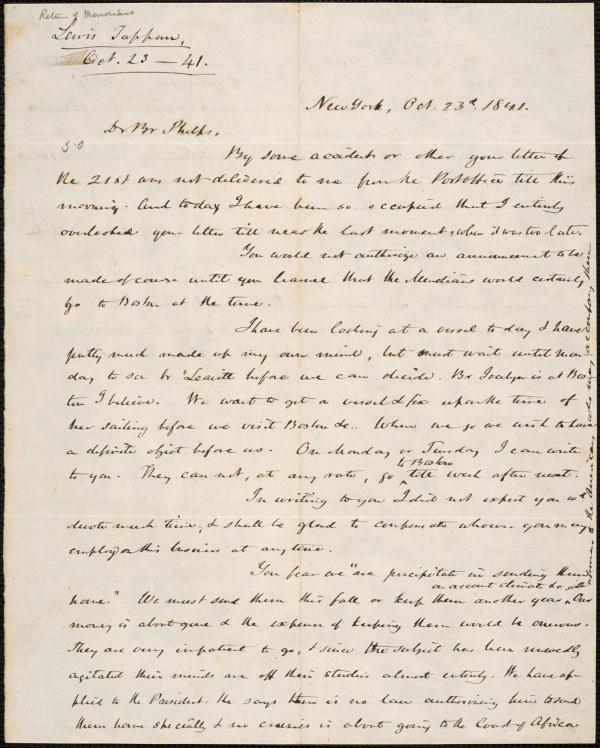 Return of Mendians
Lewis Tappan,
Oct. 23 — 41.
New York, Oct. 23d. 1841.
Dr Br Phelps,
50
By some accident or other your letter of
the 21st was not delivered to me from the Post office till this
morning. And to day I have been so occupied that I entirely
overlooked your letter till near the last moment, when it was too late.
You would not authorize an announcement to be
made of course until you learned that the Mendians would certainly
go to Boston at the time.
I have been looking at a vessel to day & have
pretty much made up my own mind, but must wait until Mon
day to see br Leavitt before we can decide. Br Jocelyn is at Bos
ton I believe. We want to get a vessel & fix upon the time of
her sailing before we visit Boston &c. When we go we wish to have
a definite object before us. On Monday or Tuesday I can write
to you. They can not, at any rate, go to Boston till week after next.
In writing to you I did not expect you wd
devote much time, & shall be glad to compensate whoever you may
employ on this business at any time.
You fear we "are precipitate in sending them
home." We must send them this fall or keep them another year on account climate &c. Our
money is about gone & the expense of keeping them would be onerous.
They are very impatient to go, & since the subject has been newedly
agitated their minds are off their studies almost entirely. We have ap-
plied to the President. He says there is no law authorizing him to send
them home specially & no cruiser is about going to the Coast of Africa
the Americans who may accompany them